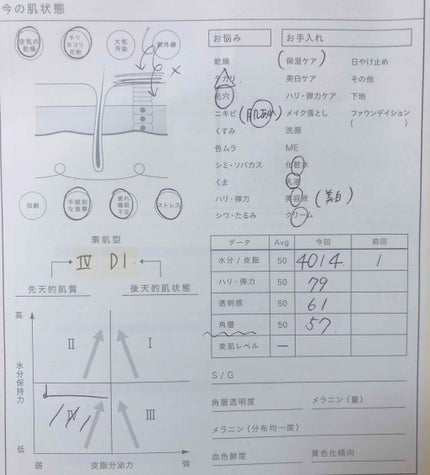 今の肌状態
空気の乾燥
チリホコリ花粉
大気汚染
紫外線
加齢
不規則な食事
疲れ睡眠不足
ストレス
お悩み
お手入れ
乾燥
(保湿ケア)
日やけ止め
テカリ
美白ケア
その他
毛穴
ハリ・弾力ケア
下地
ニキビ(肌あれ)
メイク落とし
ファウンデイション
くすみ
洗顔
( )
色ムラ
ME
シミ・ソバカス
化粧水
くま
乳液
ハリ・弾力
美容液 (美白)
シワ・たるみ
クリーム
素肌型
IV D1
先天的肌質
後天的肌状態
データ Avg 今回 前回
水分/皮脂 50 4014 1
ハリ・弾力 50 79
透明感 50 61
角層 50 57
美肌レベル —
高
II I
水分保持力
IV III
低
弱 皮脂分泌力 強
S / G
角層透明度
メラニン(量)
メラニン(分布均一度)
血色鮮度
黄色化傾向